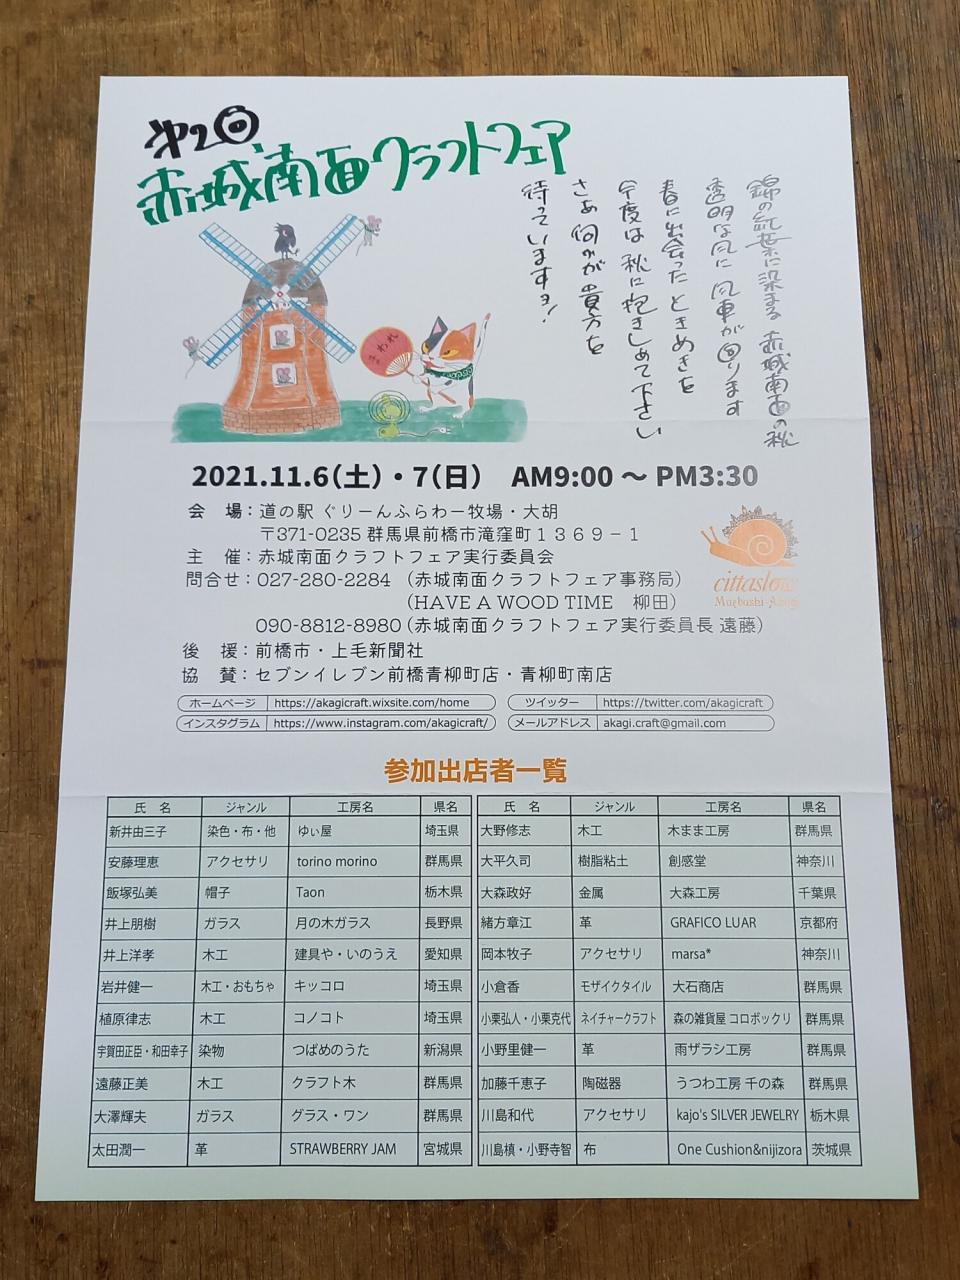 第2回
赤城南面クラフトフェア
錦の紅葉に染まる 赤城南面の秋
透明な風に 風車が回ります
春に出会った ときめきを
今度は 秋に抱きしめて下さい
さあ 何かが 貴方を
待っています!
まわれ
2021.11.6(土)・7(日) AM9:00 ~ PM3:30
会 場:道の駅 ぐりーんふらわー牧場・大胡
〒371-0235 群馬県前橋市滝窪町1369-1
主 催:赤城南面クラフトフェア実行委員会
問合せ:027-280-2284 (赤城南面クラフトフェア事務局)
(HAVE A WOOD TIME 柳田)
090-8812-8980 (赤城南面クラフトフェア実行委員長 遠藤)
後 援:前橋市・上毛新聞社
協 賛:セブンイレブン前橋青柳町店・青柳町南店
cittaslow
Maebashi-Akagi
ホームページ https://akagicraft.wixsite.com/home ツイッター https://twitter.com/akagicraft
インスタグラム https://www.instagram.com/akagicraft/ メールアドレス akagi.craft@gmail.com
参加出店者一覧
氏 名 ジャンル 工房名 県名 氏 名 ジャンル 工房名 県名
新井由三子 染色・布・他 ゆぃ屋 埼玉県 大野修志 木工 木まま工房 群馬県
安藤理恵 アクセサリ torino morino 群馬県 大平久司 樹脂粘土 創感堂 神奈川
飯塚弘美 帽子 Taon 栃木県 大森政好 金属 大森工房 千葉県
井上朋樹 ガラス 月の木ガラス 長野県 緒方章江 革 GRAFICO LUAR 京都府
井上洋孝 木工 建具や・いのうえ 愛知県 岡本牧子 アクセサリ marsa* 神奈川
岩井健一 木工・おもちゃ キッコロ 埼玉県 小倉香 モザイクタイル 大石商店 群馬県
植原律志 木工 コノコト 埼玉県 小栗弘人・小栗克代 ネイチャークラフト 森の雑貨屋 コロボックリ 群馬県
宇賀田正臣・和田幸子 染物 つばめのうた 新潟県 小野里健一 革 雨ザラシ工房 群馬県
遠藤正美 木工 クラフト木 群馬県 加藤千恵子 陶磁器 うつわ工房 千の森 群馬県
大澤輝夫 ガラス グラス・ワン 群馬県 川島和代 アクセサリ kajo's SILVER JEWELRY 栃木県
太田潤一 革 STRAWBERRY JAM 宮城県 川島槙・小野寺智 布 One Cushion&nijizora 茨城県